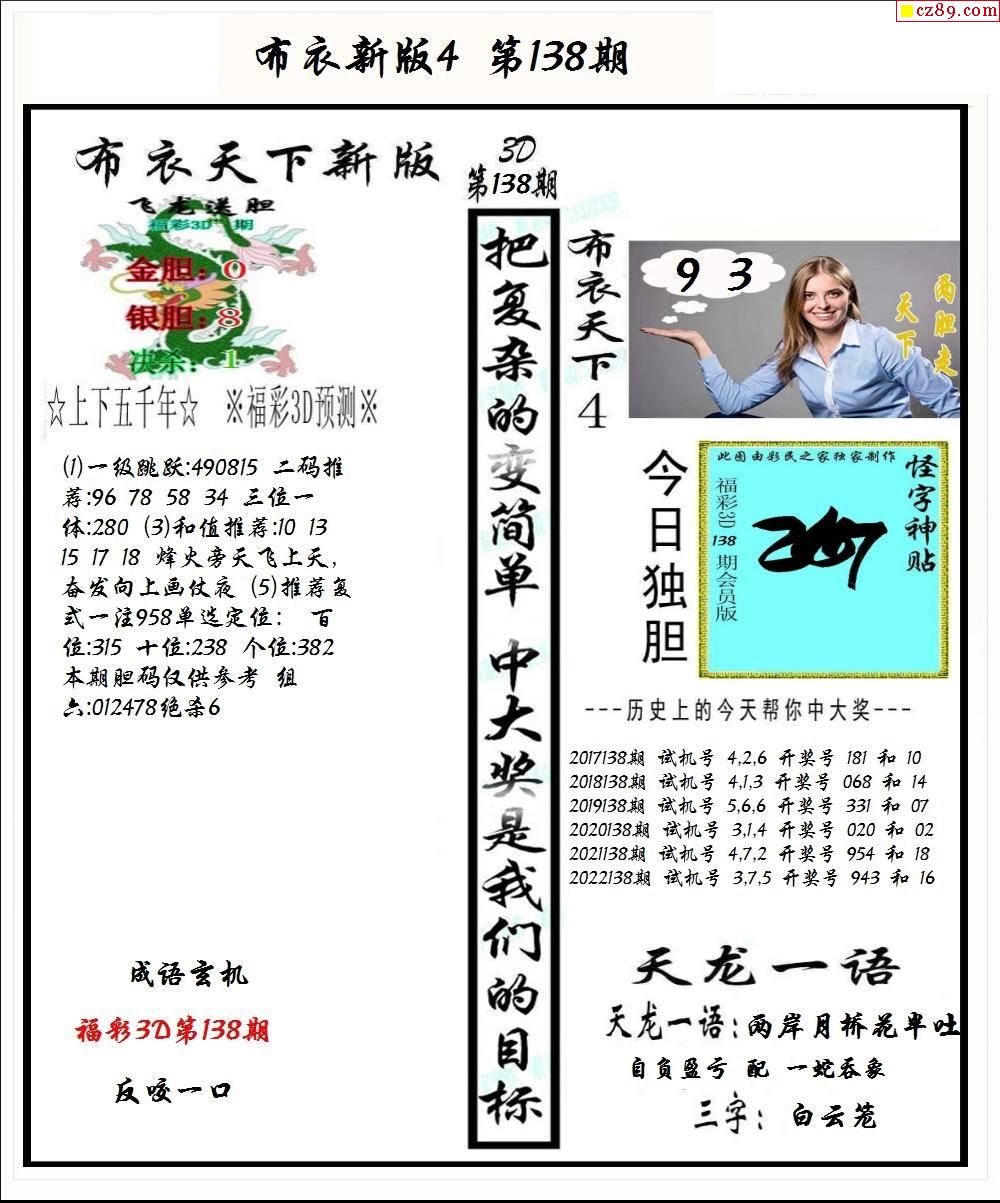 cz89.com
布衣新版4 第138期
布衣天下新版
飞龙送胆
福彩3D 期
金胆：0
银胆：8
决杀：1
☆上下五千年☆ ※福彩3D预测※
⑴一级跳跃:490815 二码推
荐:96 78 58 34 三位一
体:280 ⑶和值推荐:10 13
15 17 18 烽火旁天飞上天，
奋发向上画仗夜 ⑸推荐复
式一注958单选定位： 百
位:315 十位:238 个位:382
本期胆码仅供参考 组
六:012478绝杀6
成语玄机
福彩3D第138期
反咬一口
3D
第138期
把复杂的变简单 中大奖是我们的目标
布衣天下4
9 3
两胆走
天下
今日独胆
此图由彩民之家独家制作
怪字神贴
福彩3D 138 期会员版
---历史上的今天帮你中大奖---
2017138期 试机号 4,2,6 开奖号 181 和 10
2018138期 试机号 4,1,3 开奖号 068 和 14
2019138期 试机号 5,6,6 开奖号 331 和 07
2020138期 试机号 3,1,4 开奖号 020 和 02
2021138期 试机号 4,7,2 开奖号 954 和 18
2022138期 试机号 3,7,5 开奖号 943 和 16
天龙一语
天龙一语：两岸月桥花半吐
自负盈亏 配 一蛇吞象
三字： 白云笼